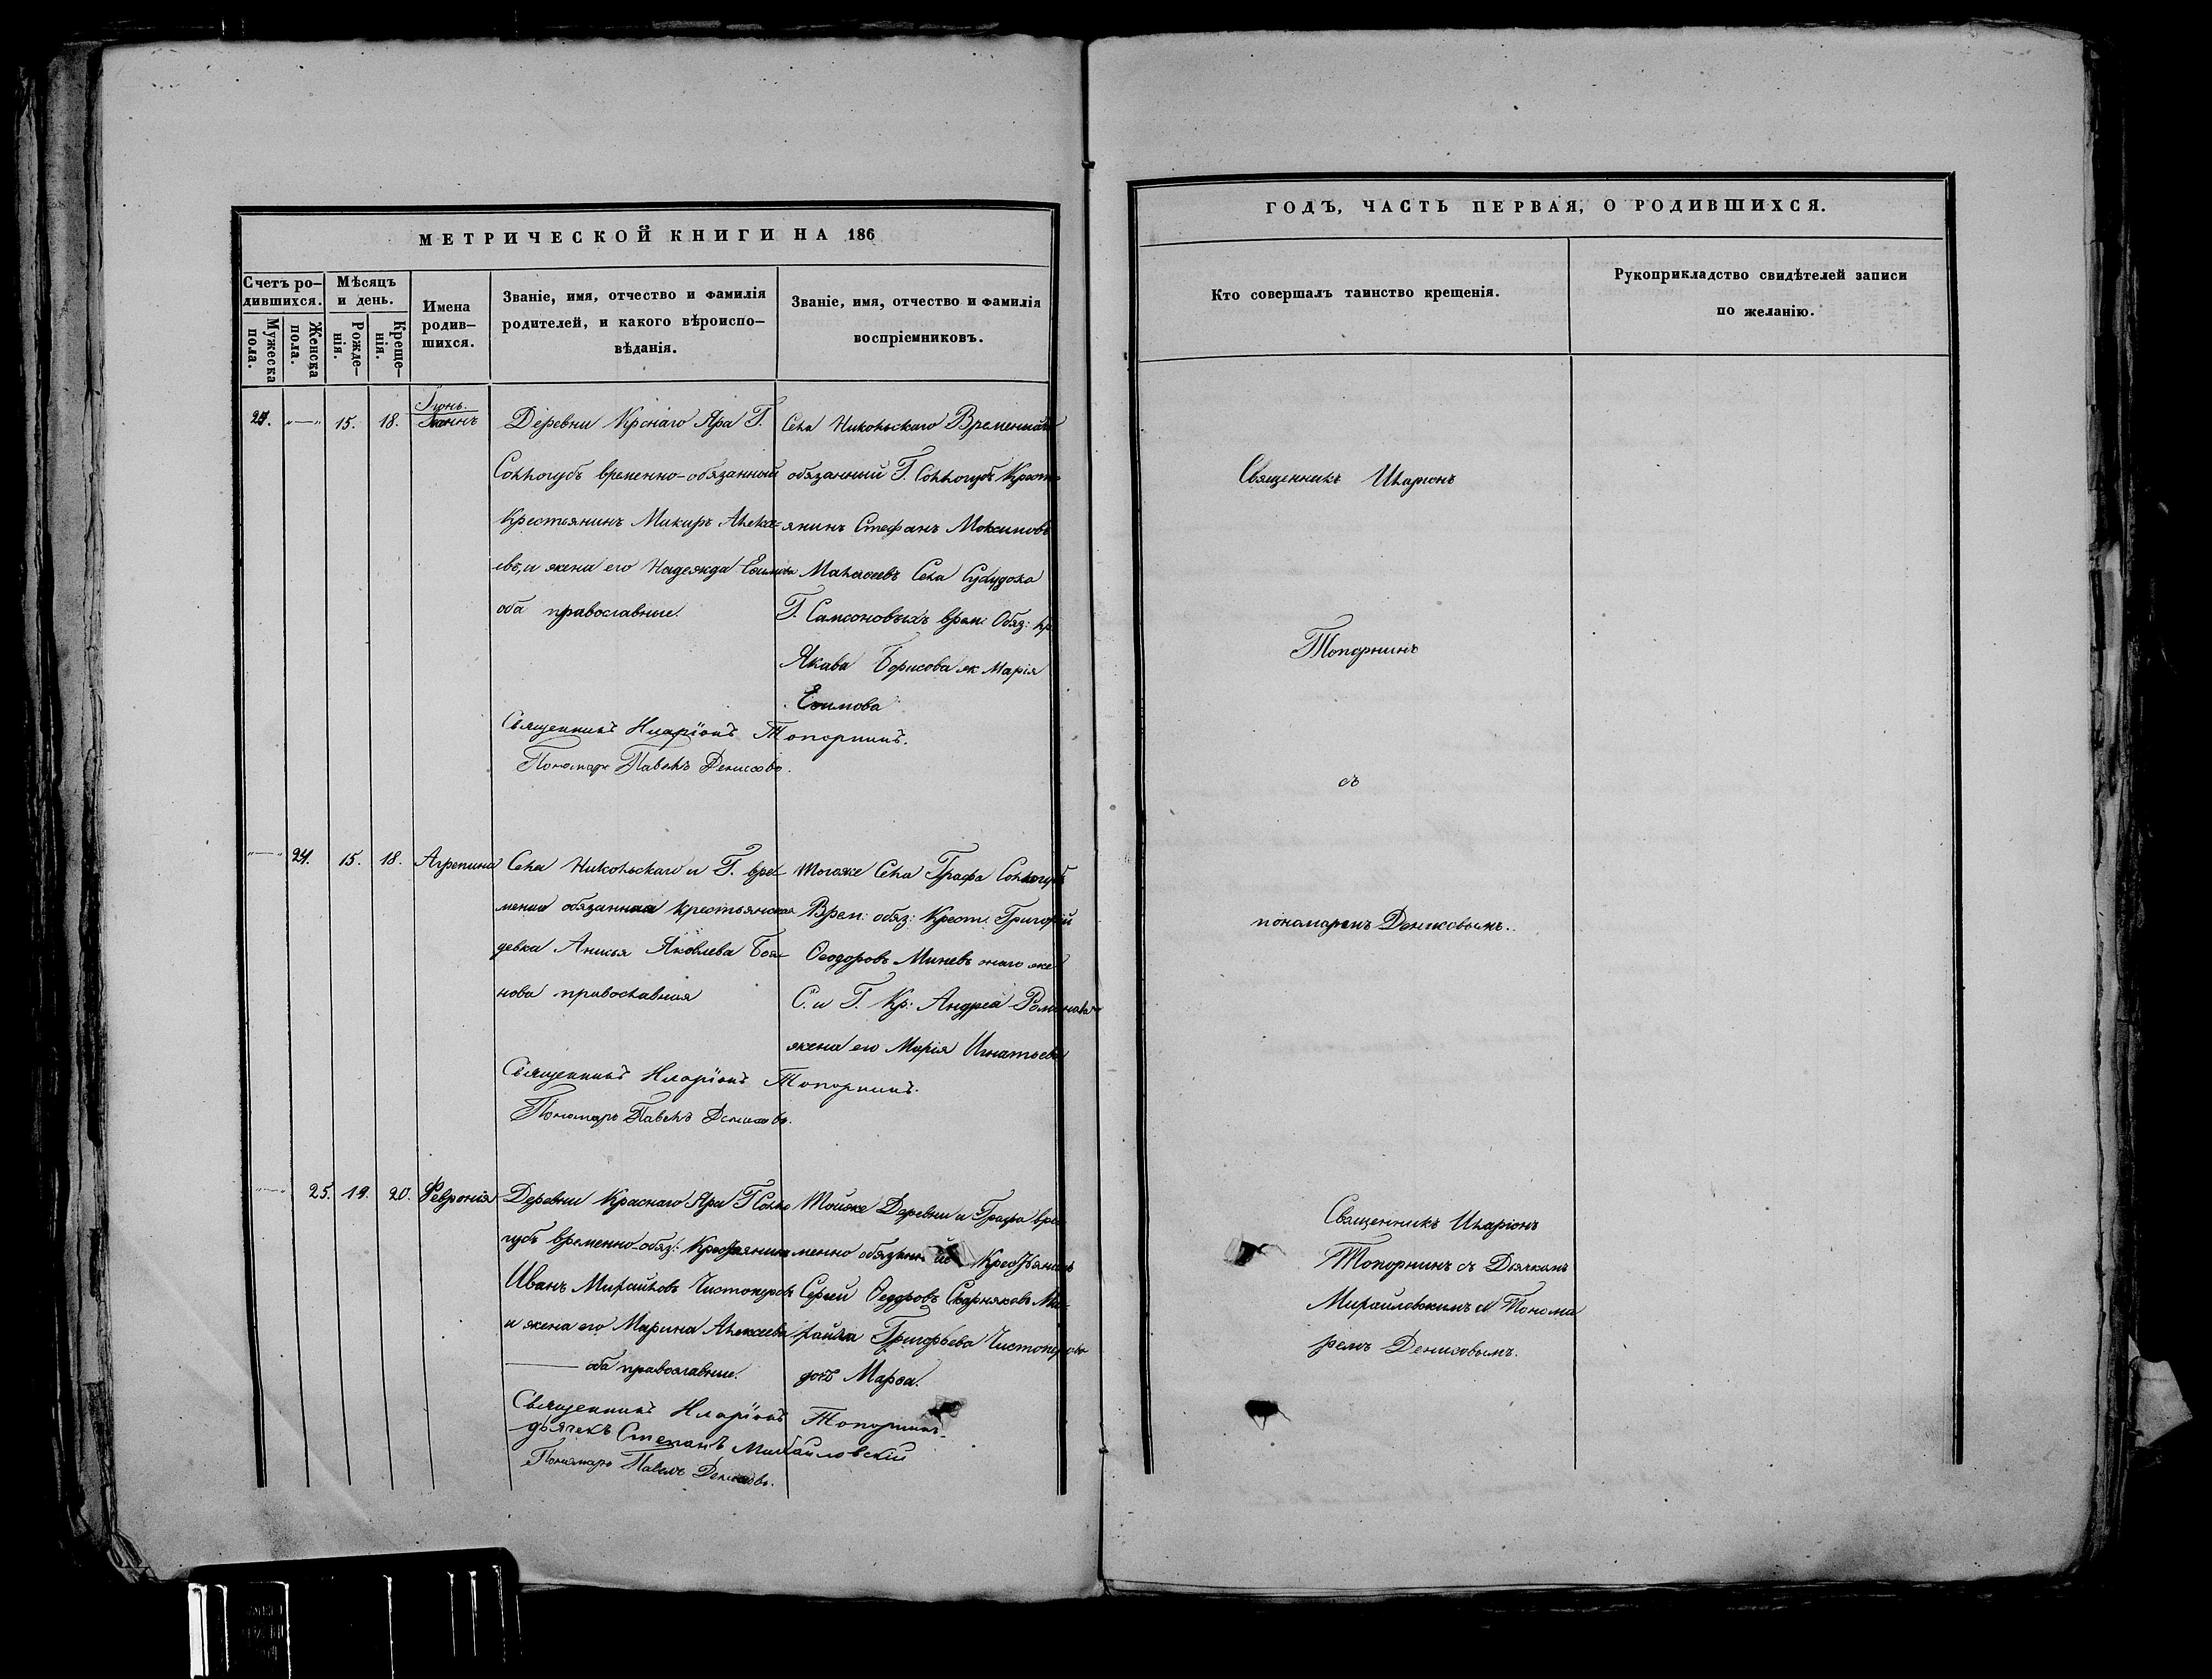 МЕТРИЧЕСКОЙ КНИГИ НА 186
Счетъ ро-
дившихся.
Мужеска
пола.
Женска
пола.
Мѣсяцъ
и день.
Рожде-
нія.
Креще-
нія.
Имена
родив-
шихся.
Званіе, имя, отчество и фамилія
родителей, и какого вѣроиспо-
вѣданія.
Званіе, имя, отчество и фамилія
воспріемниковъ.
Іюнь.
15. 18. Іоаннъ
Деревни Крснаго Яра Г.
Соллогубъ временно-обязанный
Крестьянинъ
евъ, и жена его Надежда
оба православные.
Села Никольскаго Временно
обязанный Г. Соллогубъ Кресть
янинъ Стефанъ Максимовъ
Села
Г. Самсоновыхъ врем: Обяз: кр
Якова Борисова ж Марія
Ефимова
Священникъ Иларіонъ Топорнинъ.
Пономарь Павелъ Денисовъ.
24. 15. 18. Агрепина
Села Никольскаго и Г. вре-
менно обязанная крестьянская
девка Анисья Яковлева
нова православная
Тогоже Села Графа Соллогубъ
Врем: обяз: Крест: Григорій
Ѳеодоровъ Миневъ онаго же
С. и Г. Кр: Андрея Романова
жена его Марія Игнатьева
Священникъ Иларіонъ Топорнинъ.
Пономарь Павелъ Денисовъ.
25. 19. 20. Февронія
Деревни Краснаго Яра Г Солло
губъ временно-обяз: Крестьянинъ
Иванъ Михайловъ Чистопрудовъ
и жена его Марина Алексеева
оба православные.
Тойже Деревни и Графа вре
менно обязанный Крестьянинъ
Сергей Ѳедоровъ
Григорьева
дочь Марѳа.
Священникъ Иларіонъ Топорнинъ.
дьячекъ Степанъ Михайловскій
Пономарь Павелъ Денисовъ.
ГОДЪ, ЧАСТЬ ПЕРВАЯ, О РОДИВШИХСЯ.
Кто совершалъ таинство крещенія.
Рукоприкладство свидѣтелей записи
по желанію.
Священникъ Иларіонъ
Топорнинъ
съ
пономаремъ Денисовымъ.
Священникъ Иларіонъ
Топорнинъ съ Дьячкомъ
Михайловскимъ и Понома
ремъ Денисовымъ.